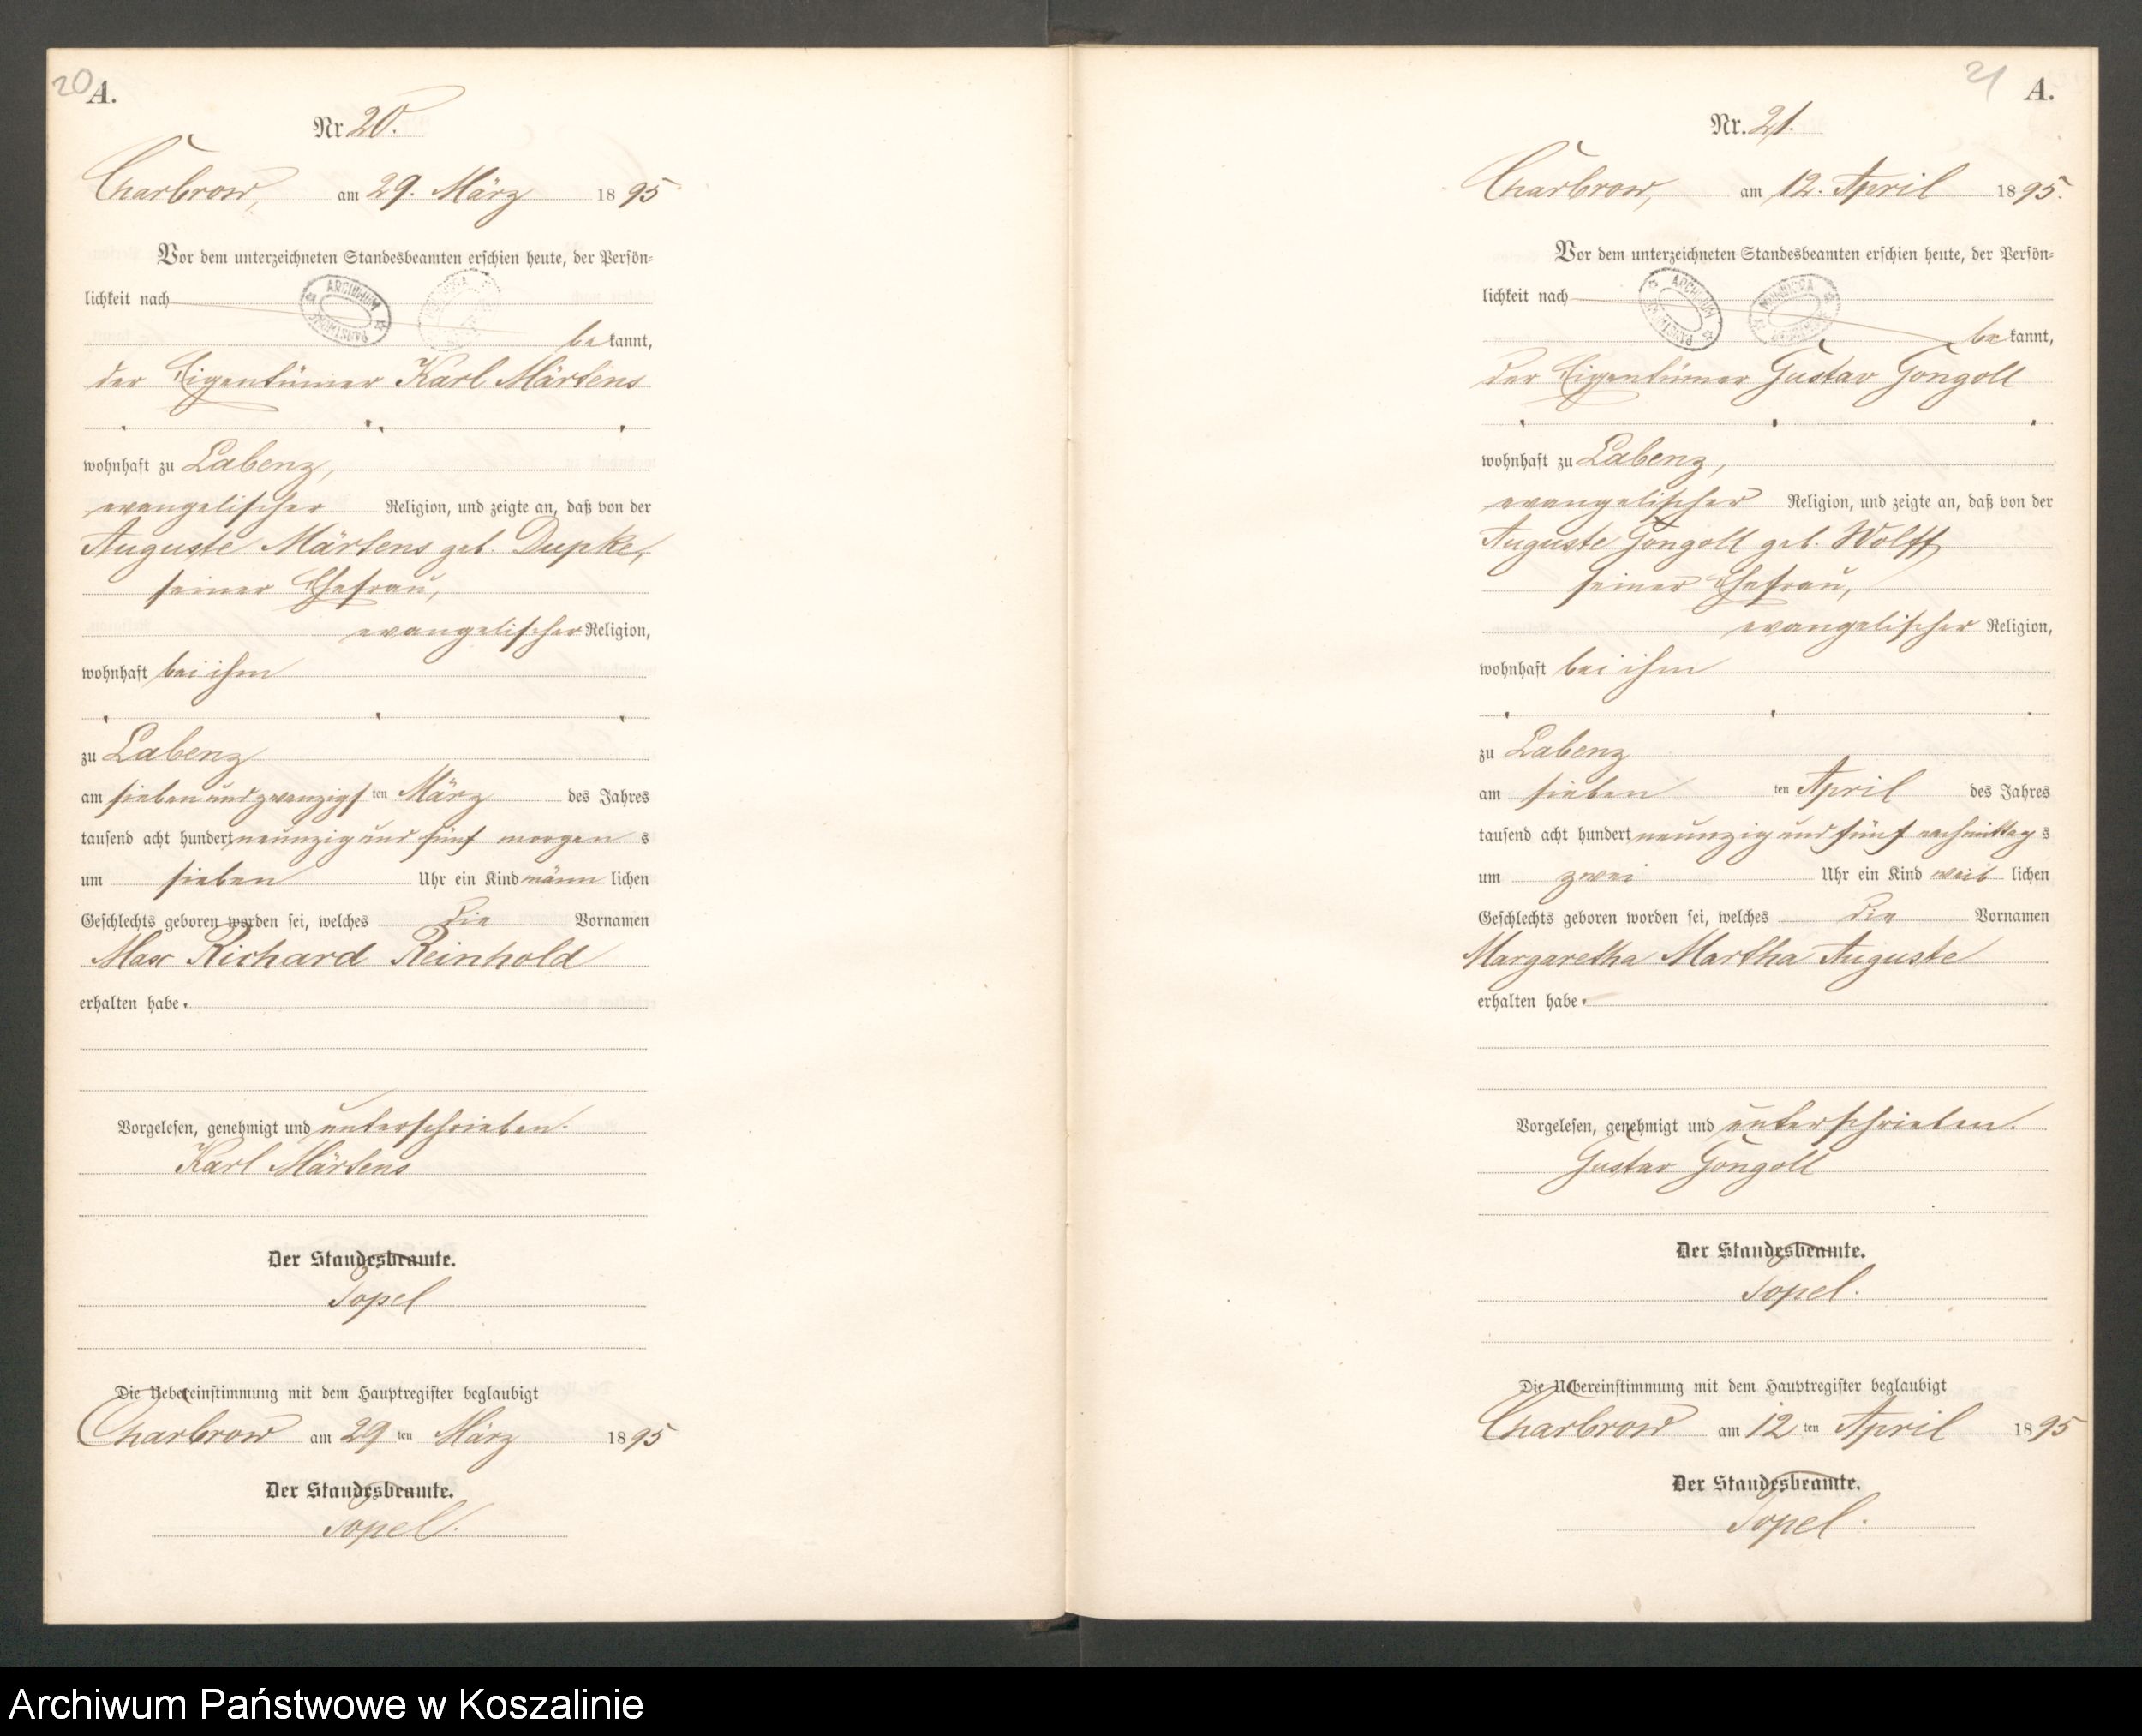 20
A.
Nr. 20.
Charbrow, am 29. März 1895
Vor dem unterzeichneten Standesbeamten erschien heute, der Persön-
lichkeit nach
bekannt,
der Eigentümer Karl Märtens
wohnhaft zu Labenz,
evangelischer Religion, und zeigte an, daß von der
Auguste Märtens geb. Dupke,
seiner Ehefrau,
evangelischer Religion,
wohnhaft bei ihm
zu Labenz
am siebenundzwanzigsten März des Jahres
tausend acht hundert neunzig und fünf morgens
um sieben Uhr ein Kind männlichen
Geschlechts geboren worden sei, welches die Vornamen
Max Richard Reinhold
erhalten habe.
Vorgelesen, genehmigt und unterschrieben.
Karl Märtens
Der Standesbeamte.
Topel
Die Uebereinstimmung mit dem Hauptregister beglaubigt
Charbrow am 29ten März 1895
Der Standesbeamte.
Topel.
21
A.
Nr. 21.
Charbrow, am 12. April 1895.
Vor dem unterzeichneten Standesbeamten erschien heute, der Persön-
lichkeit nach
bekannt,
der Eigentümer Gustav Gongoll
wohnhaft zu Labenz,
evangelischer Religion, und zeigte an, daß von der
Auguste Gongoll geb. Wolff,
seiner Ehefrau,
evangelischer Religion,
wohnhaft bei ihm
zu Labenz
am siebenten April des Jahres
tausend acht hundert neunzig und fünf nachmittags
um zwei Uhr ein Kind weiblichen
Geschlechts geboren worden sei, welches die Vornamen
Margaretha Martha Auguste
erhalten habe.
Vorgelesen, genehmigt und unterschrieben.
Gustav Gongoll
Der Standesbeamte.
Topel.
Die Uebereinstimmung mit dem Hauptregister beglaubigt
Charbrow am 12ten April 1895
Der Standesbeamte.
Topel.
Archiwum Państwowe w Koszalinie